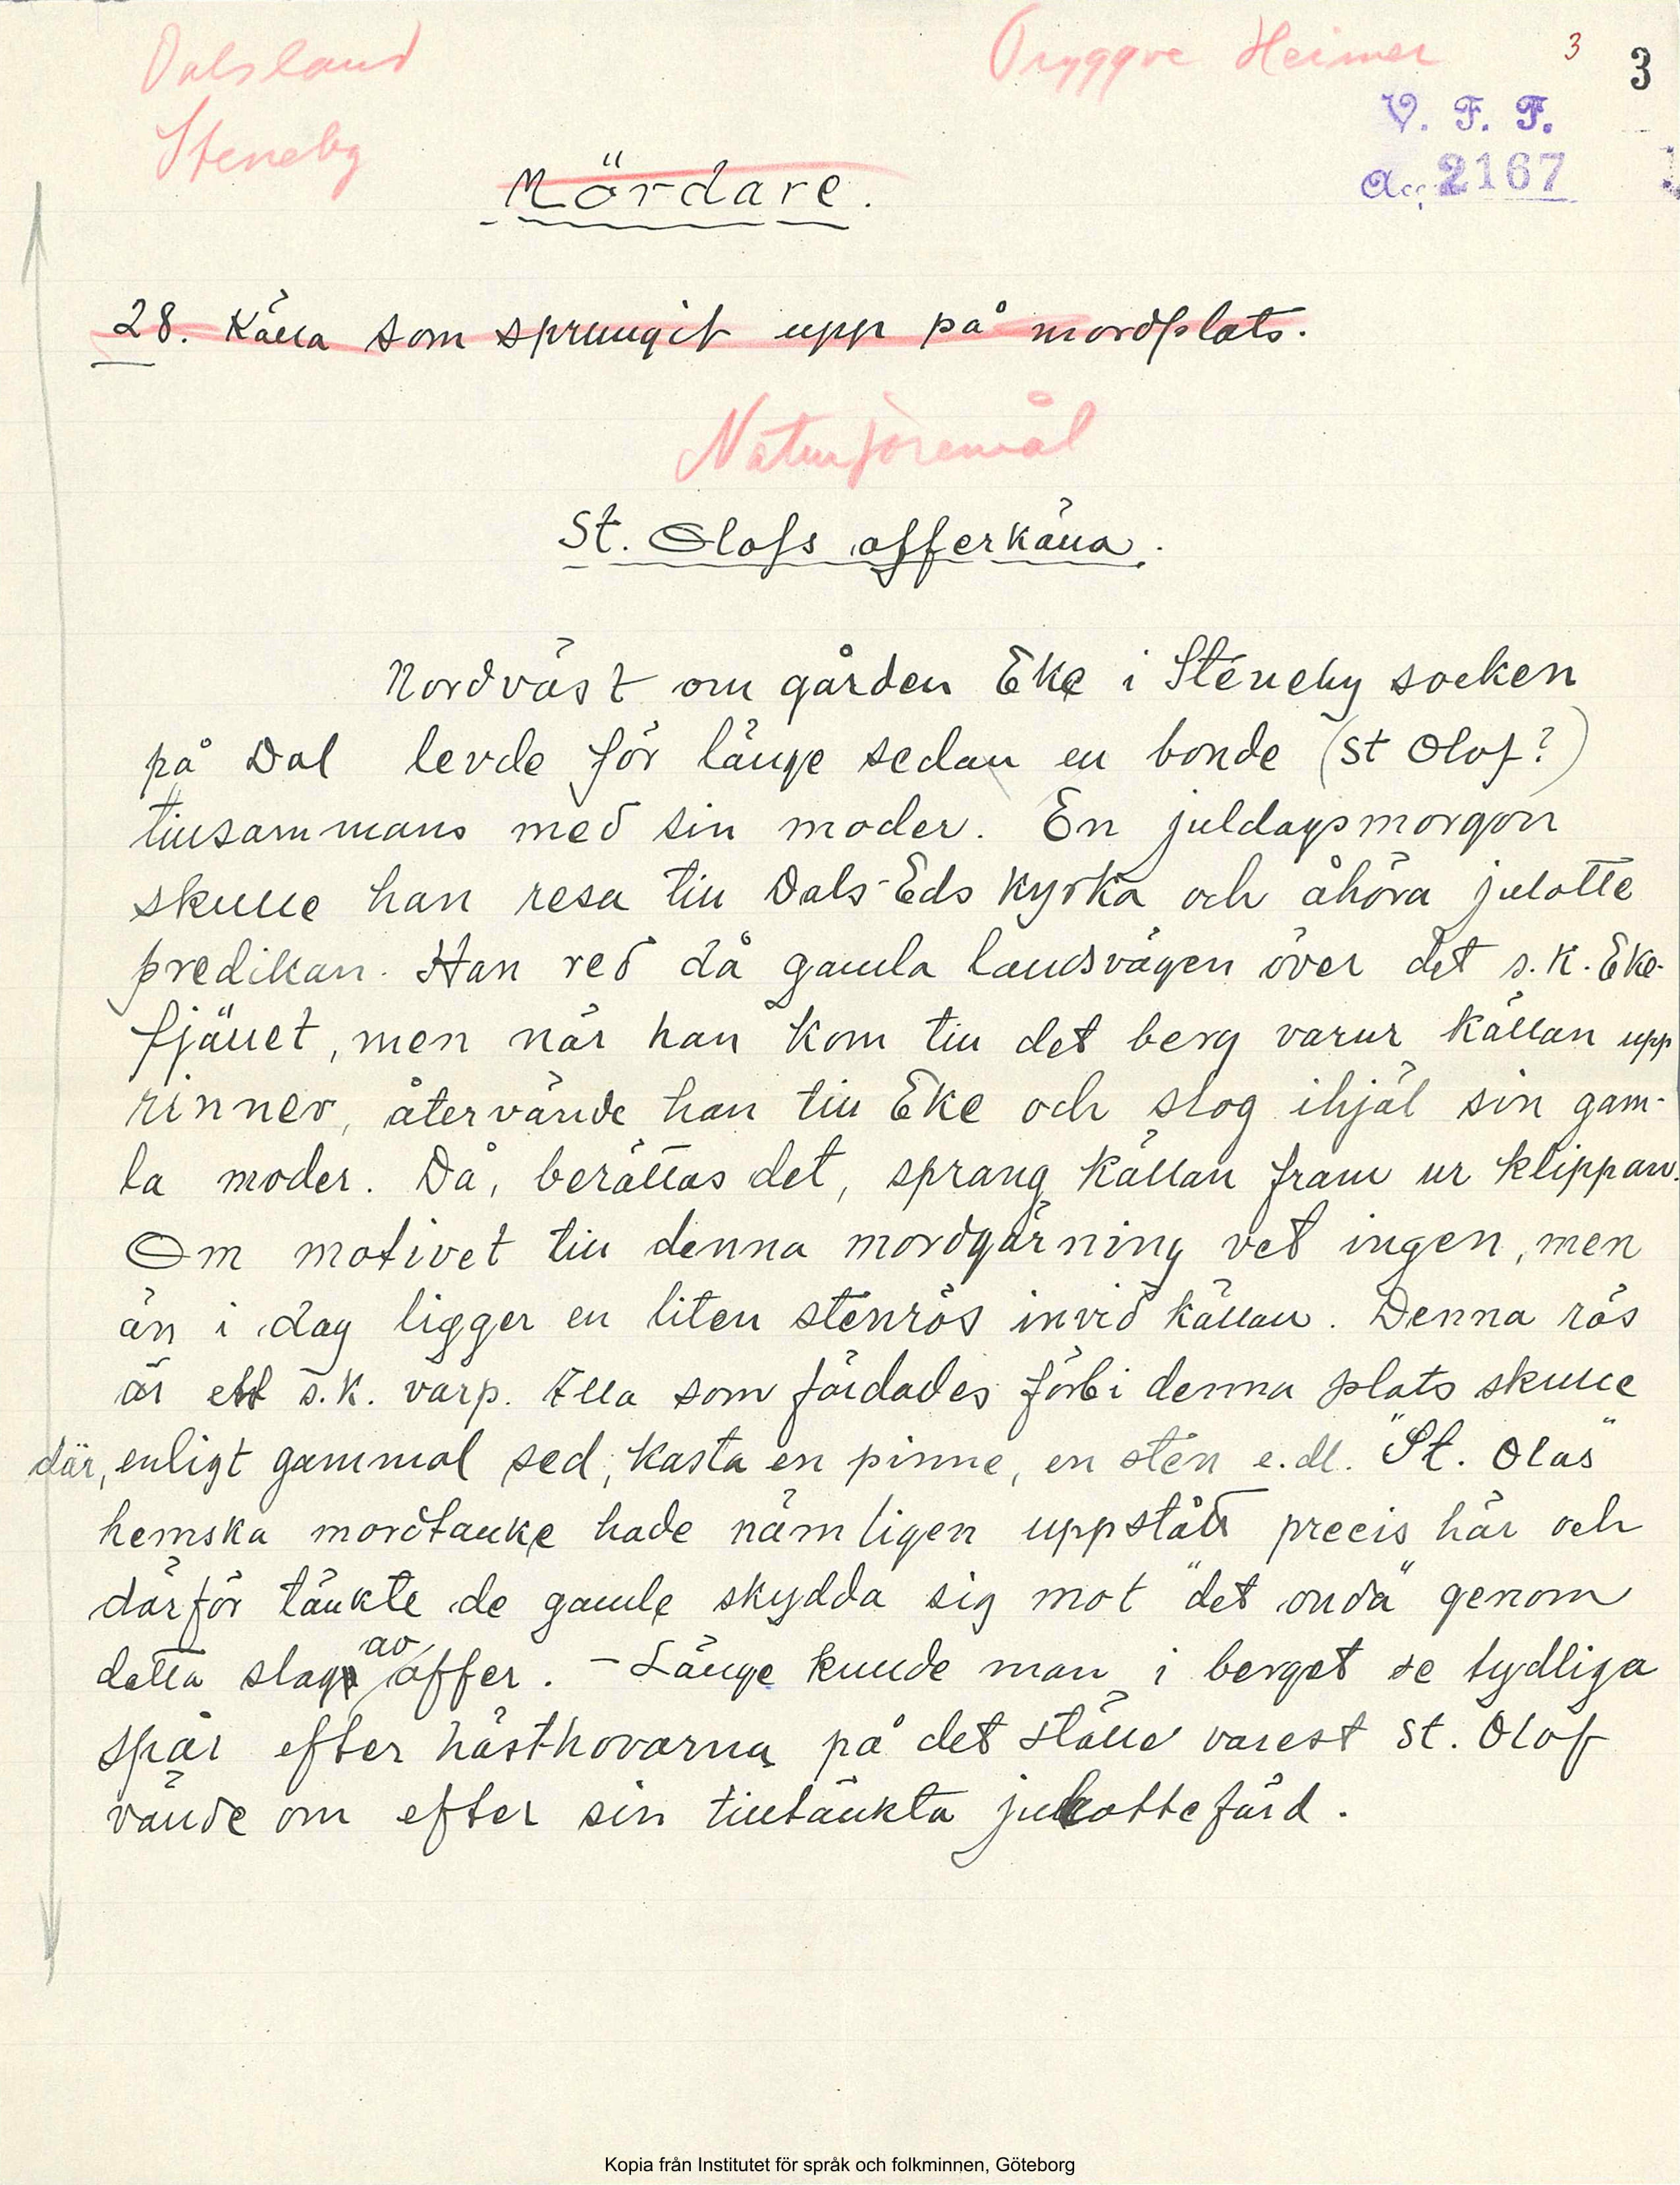 Dalsland
Tryggve Heimer
3
3
Steneby
V. F. F.
Acc. 2167
Mördare.
28. Källa som sprungit upp på mordplats.
Naturföremål
St. Olofs offerkälla.
Nordväst om gården Eke i Steneby socken
på Dal levde för länge sedan en bonde (St Olof?)
tillsammans med sin moder. En juldagsmorgon
skulle han resa till Dals-Eds kyrka och åhöra julotte
predikan. Han red då gamla landsvägen över det s.k. Eke-
fjället, men när han kom till det berg varur källan upp
rinner, återvände han till Eke och slog ihjäl sin gam-
la moder. Då, berättas det, sprang källan fram ur klippan.
Om motivet till denna mordgärning vet ingen, men
än i dag ligger en liten stenrös invid källan. Denna rös
är ett s.k. varp. Alla som färdades förbi denna plats skulle
där, enligt gammal sed, kasta en pinne, en sten e.dl. "St. Olas"
hemska mordtanke hade nämligen uppstått precis här och
därför tänkte de gamle skydda sig mot "det onda" genom
detta slags av offer. - Länge kunde man i berget se tydliga
spår efter hästhovarna på det ställe varest St. Olof
vände om efter sin tilltänkta julottefärd.
Kopia från Institutet för språk och folkminnen, Göteborg